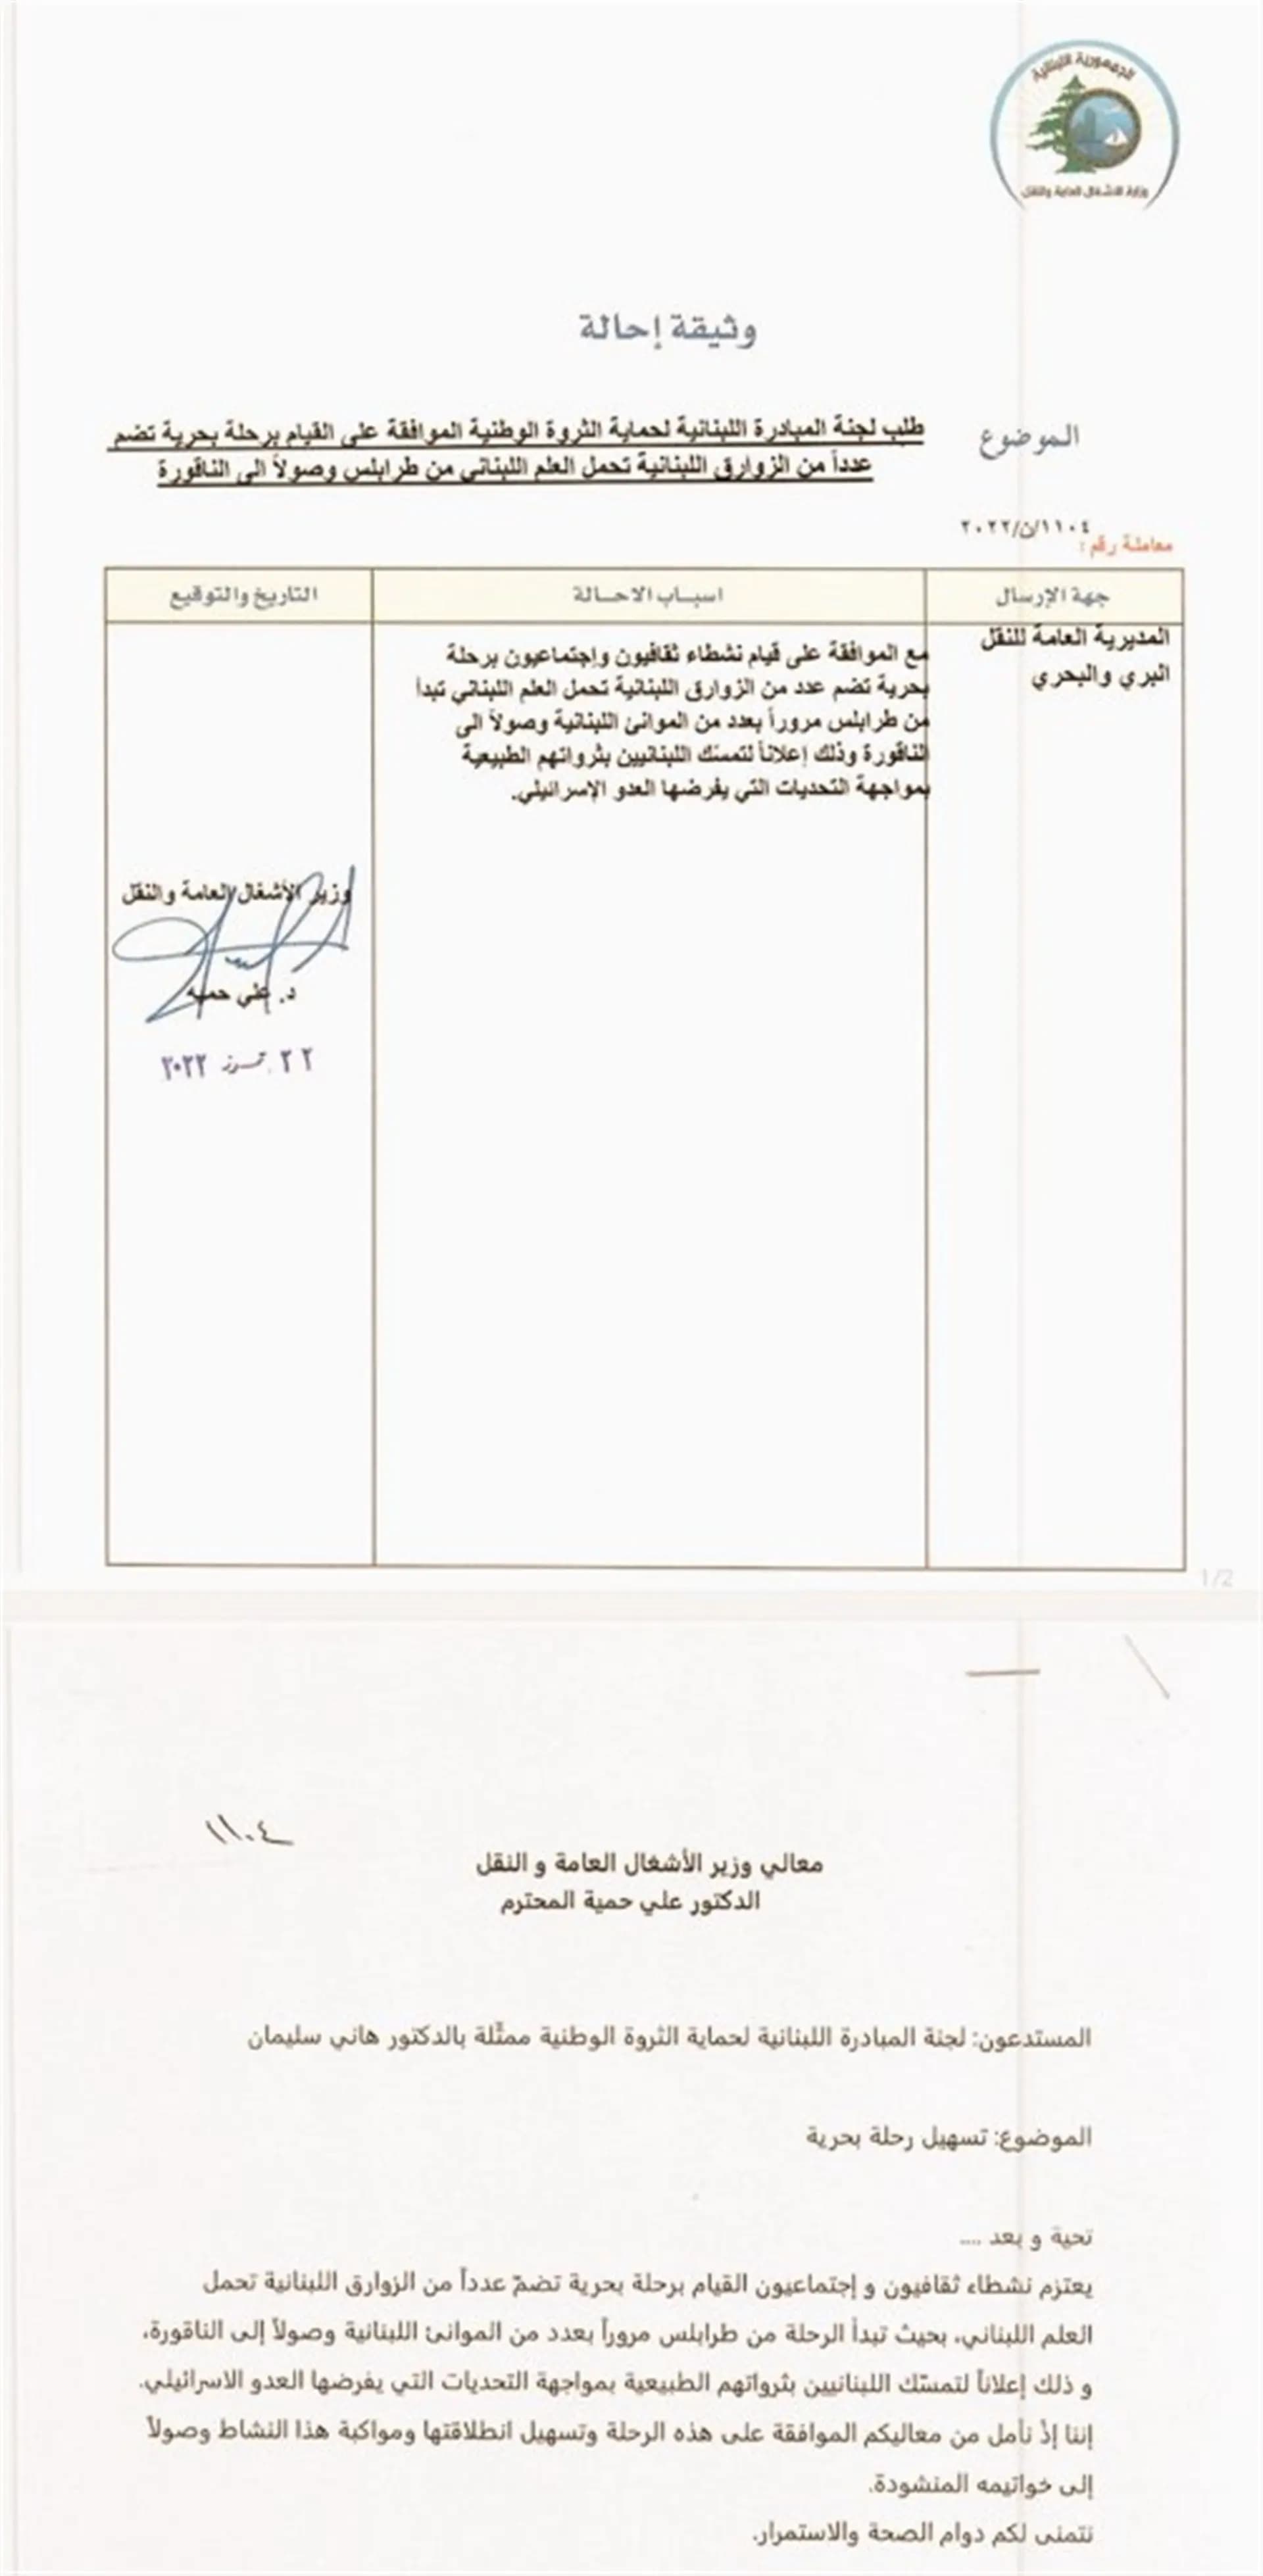 الجمهورية اللبنانية
وزارة الاشغال العامة والنقل
وثيقة إحالة
الموضوع
طلب لجنة المبادرة اللبنانية لحماية الثروة الوطنية الموافقة على القيام برحلة بحرية تضم
عدداً من الزوارق اللبنانية تحمل العلم اللبناني من طرابلس وصولاً الى الناقورة
معاملة رقم : ١١٠٤/ن/٢٠٢٢
جهة الإرسال
اسباب الاحالة
التاريخ والتوقيع
المديرية العامة للنقل
البري والبحري
مع الموافقة على قيام نشطاء ثقافيون وإجتماعيون برحلة
بحرية تضم عدد من الزوارق اللبنانية تحمل العلم اللبناني تبدأ
من طرابلس مروراً بعدد من الموانئ اللبنانية وصولاً الى
الناقورة وذلك إعلاناً لتمسّك اللبنانيين بثرواتهم الطبيعية
بمواجهة التحديات التي يفرضها العدو الإسرائيلي.
وزير الأشغال العامة والنقل
د. علي حميه
٢٢ تموز ٢٠٢٢
1/2
١١٠٤
معالي وزير الأشغال العامة و النقل
الدكتور علي حمية المحترم
المستدعون: لجنة المبادرة اللبنانية لحماية الثروة الوطنية ممثّلة بالدكتور هاني سليمان
الموضوع: تسهيل رحلة بحرية
تحية و بعد ....
يعتزم نشطاء ثقافيون و إجتماعيون القيام برحلة بحرية تضمّ عدداً من الزوارق اللبنانية تحمل
العلم اللبناني، بحيث تبدأ الرحلة من طرابلس مروراً بعدد من الموانئ اللبنانية وصولاً إلى الناقورة،
و ذلك إعلاناً لتمسّك اللبنانيين بثرواتهم الطبيعية بمواجهة التحديات التي يفرضها العدو الاسرائيلي.
إننا إذْ نأمل من معاليكم الموافقة على هذه الرحلة وتسهيل انطلاقتها ومواكبة هذا النشاط وصولاً
إلى خواتيمه المنشودة.
نتمنى لكم دوام الصحة والاستمرار.